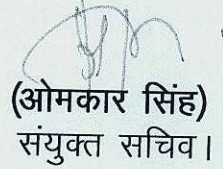 (ओमकार सिंह)
संयुक्त सचिव।